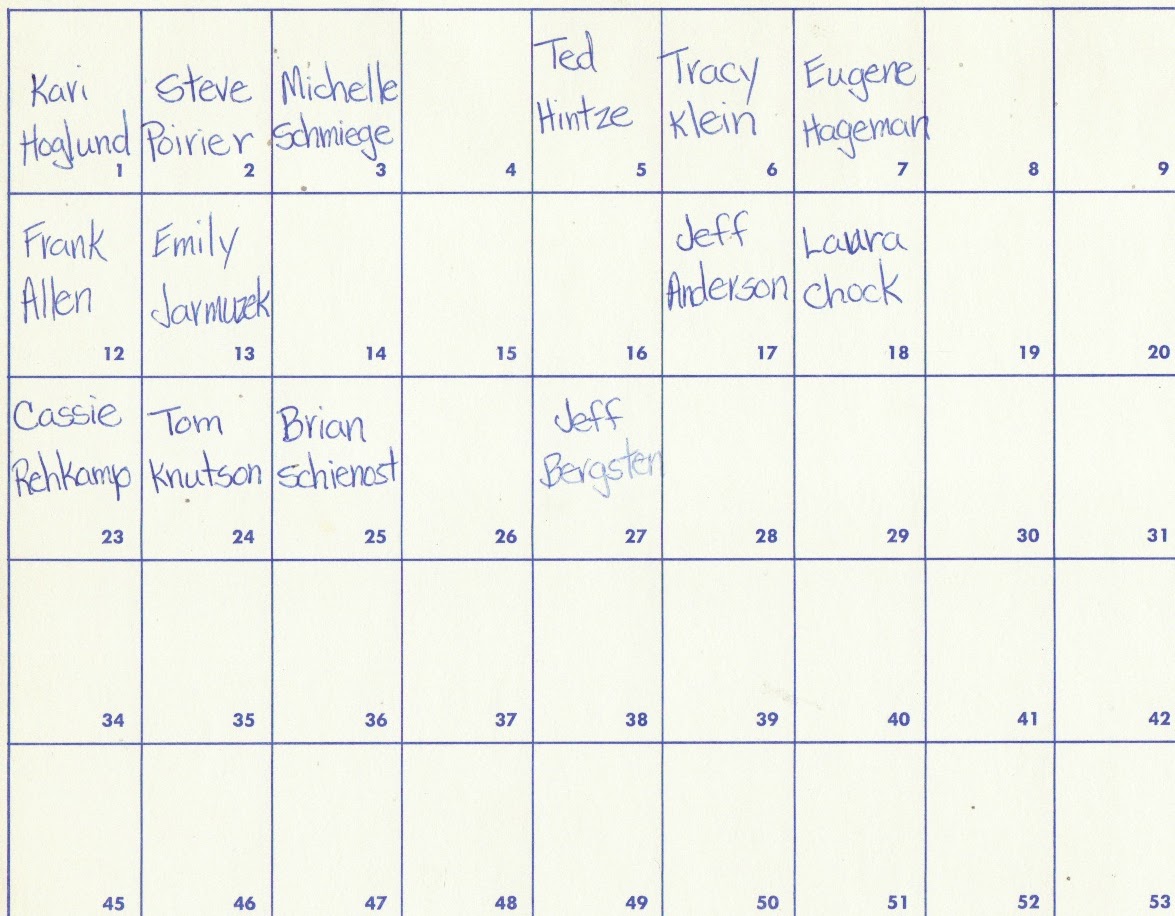 Kari
Hoglund
1
Steve
Poirier
2
Michelle
Schmiege
3
4
Ted
Hintze
5
Tracy
Klein
6
Eugene
Hageman
7
8
9
Frank
Allen
12
Emily
Jarmuzek
13
14
15
16
Jeff
Anderson
17
Laura
Chock
18
19
20
Cassie
Rehkamp
23
Tom
Knutson
24
Brian
Schienost
25
26
Jeff
Bergsten
27
28
29
30
31
34
35
36
37
38
39
40
41
42
45
46
47
48
49
50
51
52
53